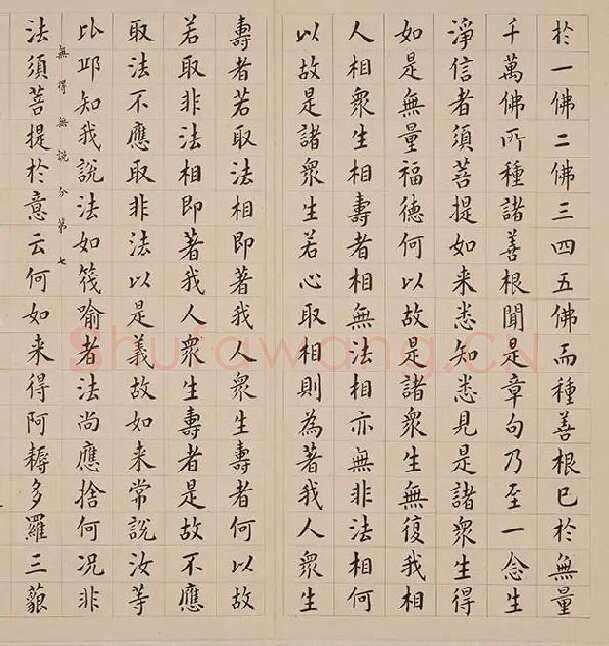 於一佛二佛三四五佛而種善根已於無量
千萬佛所種諸善根聞是章句乃至一念生
淨信者須菩提如来悉知悉見是諸衆生得
如是無量福德何以故是諸衆生無復我相
人相衆生相壽者相無法相亦無非法相何
以故是諸衆生若心取相則為著我人衆生
壽者若取法相即著我人衆生壽者何以故
若取非法相即著我人衆生壽者是故不應
取法不應取非法以是義故如来常說汝等
比邱知我說法如筏喻者法尚應捨何况非
無得無說分第七
法須菩提於意云何如来得阿耨多羅三藐
Shufawang.CN